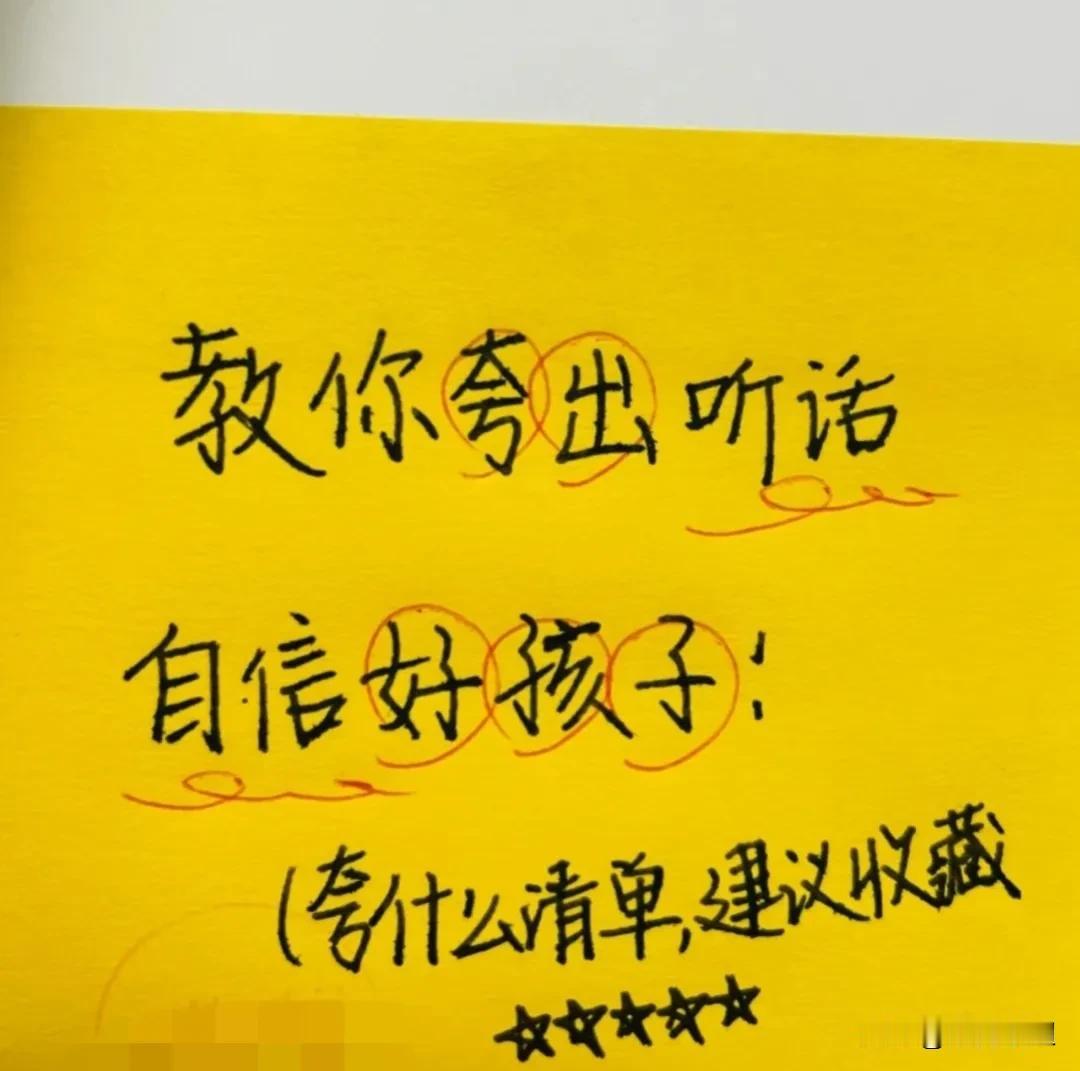 教你夸出听话
自信好孩子:
(夸什么清单,建议收藏
☆☆☆☆☆